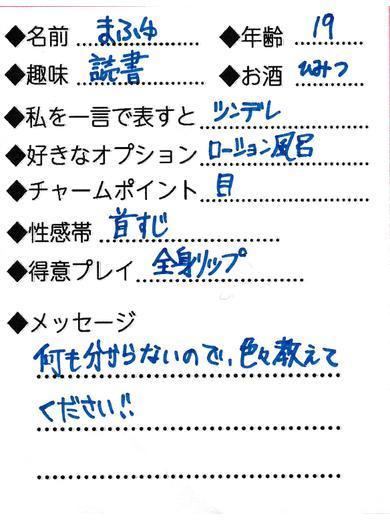 ◆名前 まふゆ ◆年齢 19
◆趣味 読書 ◆お酒 ひみつ
◆私を一言で表すと ツンデレ
◆好きなオプション ローション風呂
◆チャームポイント 目
◆性感帯 首すじ
◆得意プレイ 全身リップ
◆メッセージ
何も分からないので、色々教えて
ください!!